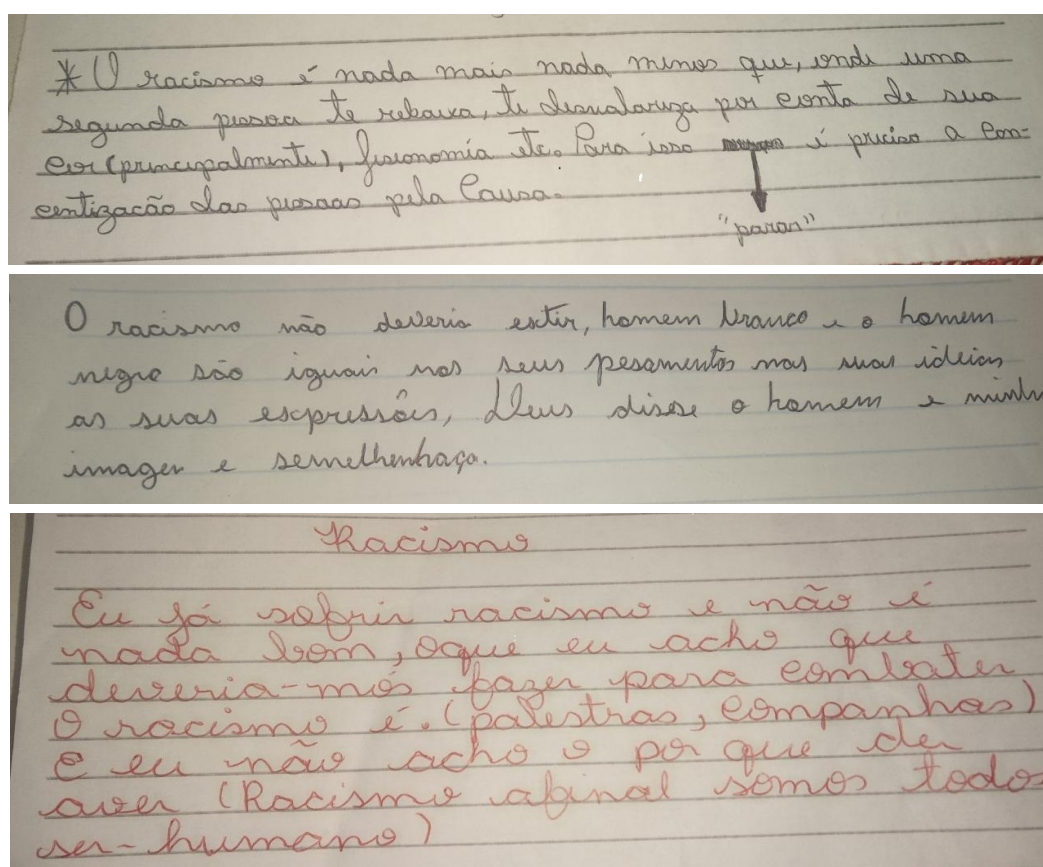 * O racismo é nada mais nada menos que, onde uma
segunda pessoa te rebaixa, te desvalaruza por conta de sua
cor (principalmente), fisionomia etc. Para isso é preciso a con-
centização das pessoas pela Causa.
"parar"
O racismo não deveria extir, homem branco e o homem
negro são iguais nos seus pesamentos nas suas ideias
as suas expressões, Deus disese o homem e minh
imagen e semelhenhaça.
Racismo
Eu já sofrir racismo e não é
nada bom, oque eu acho que
deveria-mos fazer para combater
o racismo é. (palestras, companhas)
E eu não acho o por que de
aver (Racismo afinal somos todos
ser-humano)